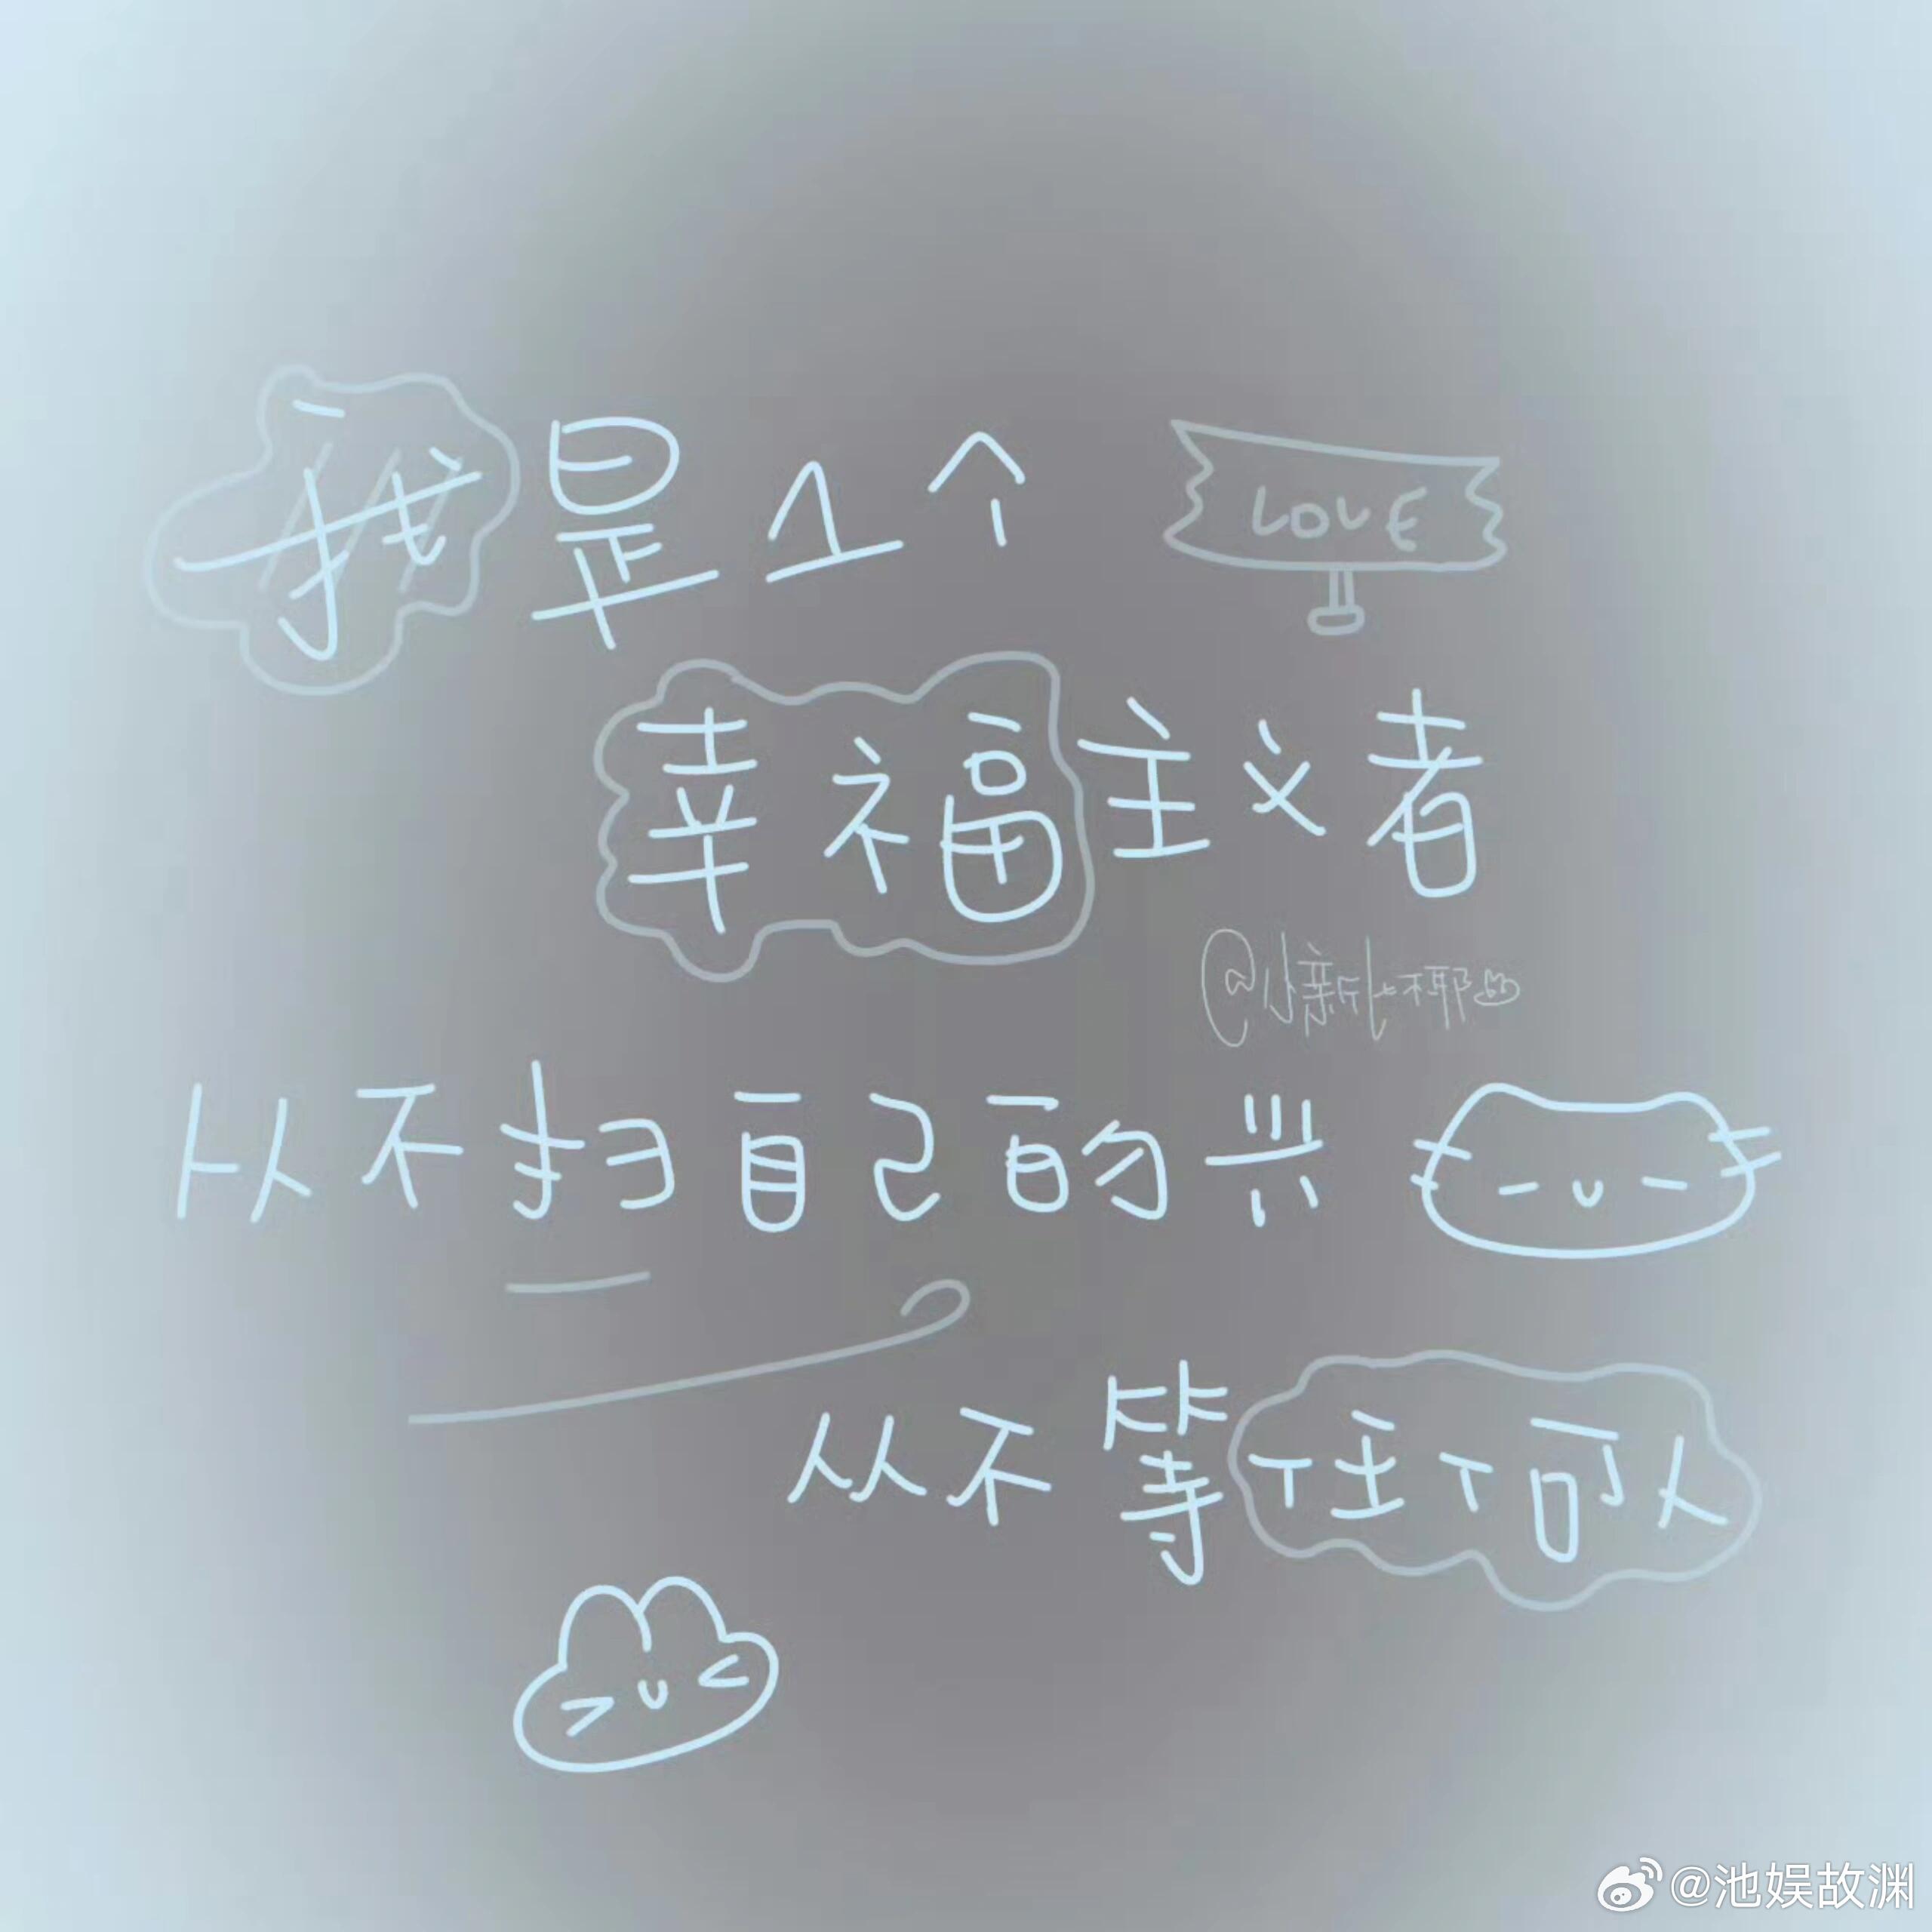 我是1个
LOVE
幸福主义者
从不扫自己的兴
从不等任何人
@池娱故渊